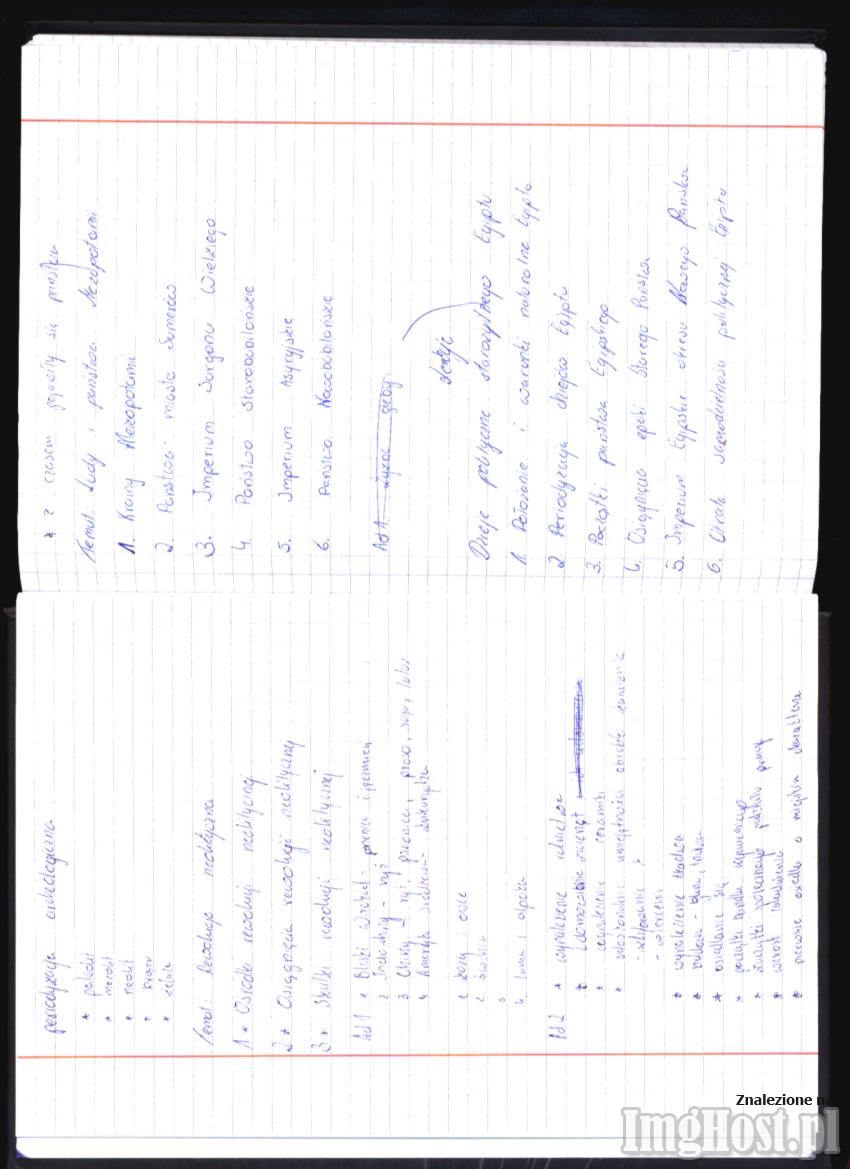 periodyzacja archeologiczna
* paleolit
* mezolit
* neolit
* brązu
* żelaza
Temat: Rewolucja neolityczna
1 * Ośrodki rewolucji neolitycznej
2 * Osiągnięcia rewolucji neolitycznej
3 * Skutki rewolucji neolitycznej
Ad 1 1 Bliski Wschód - pszenica i jęczmień
2 Indochiny - ryż
3 Chiny - ryż, pszenica, proso, soja,
4 Ameryka środkowa - kukurydza
1. kozy i owce
2. świnia
3.
4. lama i alpaka
Ad 2 * wynalezienie rolnictwa
* udomowienie zwierząt
* wynalezienie ceramiki
* udoskonalenie umiejętności obróbki kamienia
-
- wiercenie
* wynalezienie tkactwa
*
* osiedlanie się
* początki handlu wymiennego
* początki społecznego podziału pracy
* wzrost zaludnienia
* pierwsze osiedla o miejskim charakterze
* ? czasem pojawiły się państwa
Temat: Ludy i państwa Mezopotamii
1. Krainy Mezopotamii
2. Państwa - miasta Sumerów
3. Imperium Sargona Wielkiego
4. Państwo Starobabilońskie
5. Imperium Asyryjskie
6. Państwo Nowobabilońskie
Ad 1.
Dzieje polityczne starożytnego Egiptu
1. Położenie i warunki naturalne Egiptu
2. Periodyzacja dziejów Egiptu
3. Początki państwa Egipskiego
4. Osiągnięcia epoki Starego Państwa
5. Imperium Egipskie okresu Nowego Państwa
6. Utrata samodzielności politycznej Egiptu
Znalezione na
ImgHost.pl